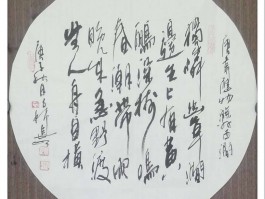 唐韋應物滁州西澗
獨憐幽草澗
邊生上有黄
鸝深樹鳴
春潮帶雨
晚來急野渡
無人舟自横